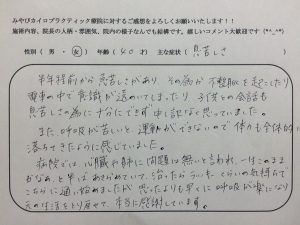 みやびカイロプラクティック療院に対するご感想をよろしくお願いいたします!!
施術内容、院長の人柄・雰囲気、院内の様子なんでも結構です。嬉しいコメント大歓迎です(*^_^*)
性別( 男 ・ 女 ) 年齢( 40才 ) 主な症状( 息苦しさ )
半年程前から息苦しさがあり、その為か不整脈を起こしたり
電車の中で意識が遠のいてしまったり、子供との会話も
息苦しさの為に十分にできず申し訳なく思っていました。
また、呼吸が苦しいと運動ができないので体力も全体的に
落ちてきたように感じていました。
病院では、心臓や肺に問題は無いと言われ、一生このまま
かなぁ、と半ばあきらめていて、治ったらラッキーくらいの気持ちで
こちらに通い始めましたが、思ったよりも早くに呼吸が楽になり
元の生活をとり戻せて、本当に感謝しています。